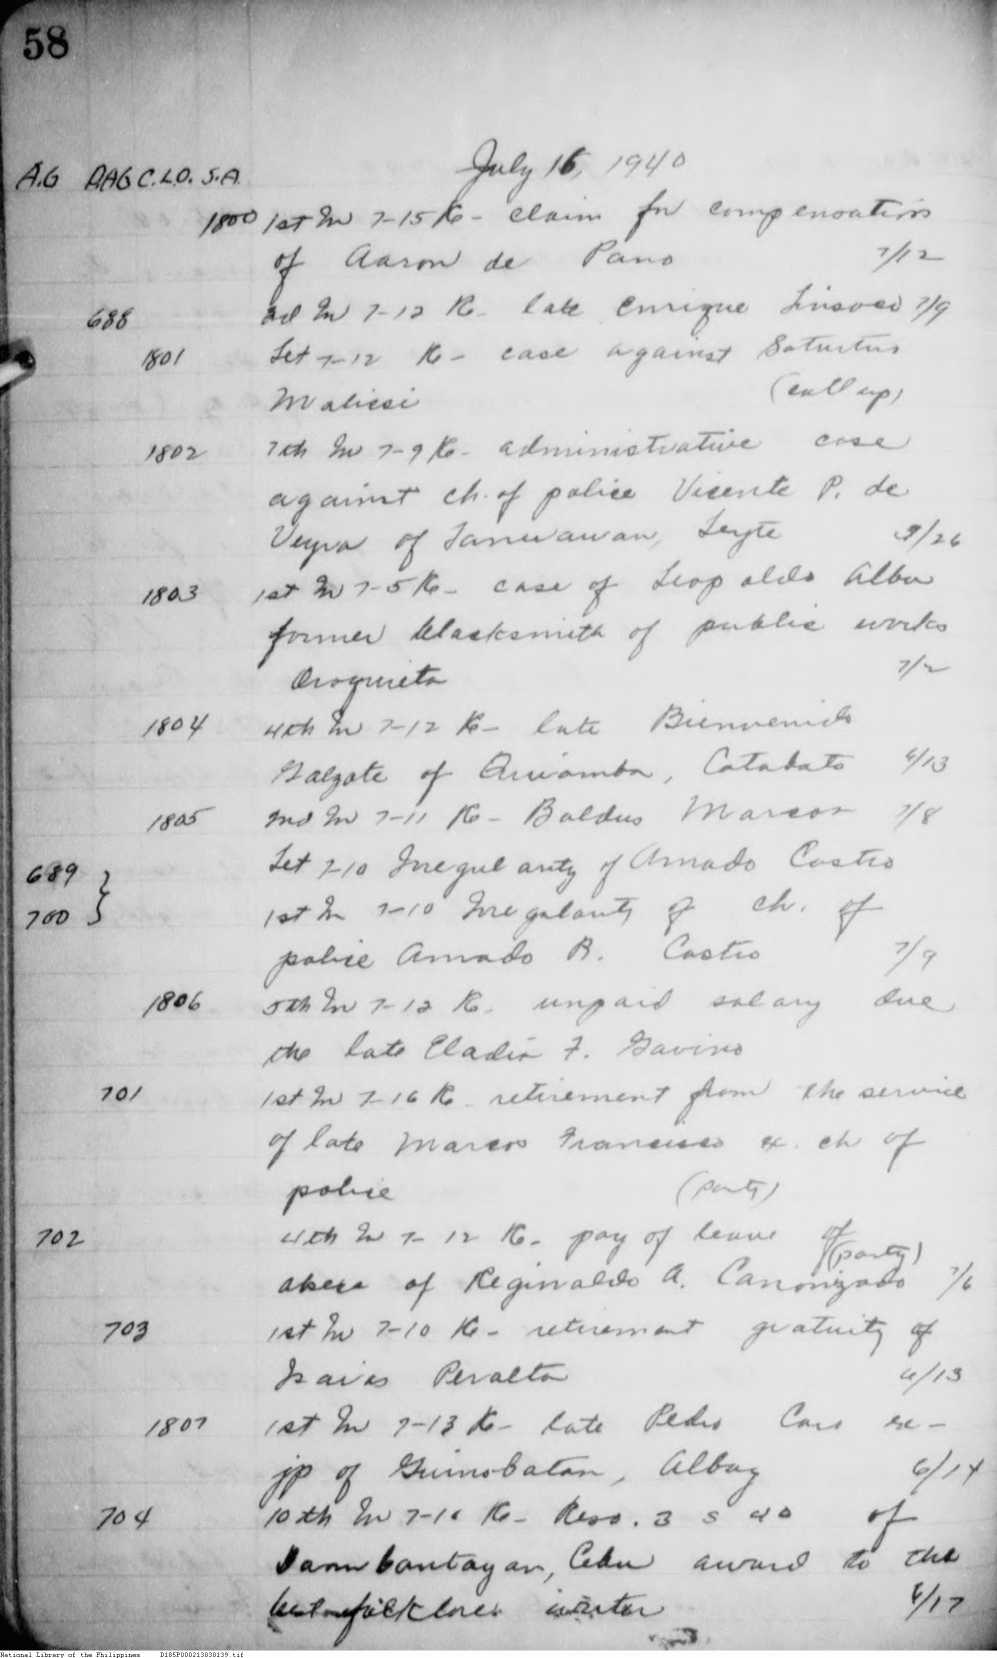 58
July 16, 1940
A.G AAG C.L.O. S.A.
1800 1st In 7-15 R- claim for compensation
of Aaron de Pano 7/12
688 2d In 7-12 R- late Enrique 7/9
1801 Let 7-12 R- case against
Malicsi (call up)
1802 7th In 7-9 R- administrative case
against ch. of police Vicente P. de
Veyra of Tanauan, Leyte 3/26
1803 1st In 7-5 R- case of Leopoldo Alba
former blacksmith of public works
Oroquieta 7/2
1804 4th In 7-12 R- late Bienvenido
Galzote of Kiamba, Cotabato 6/13
1805 2nd In 7-11 R- Baldus Marcos 7/8
689 } Let 7-10 Irregularity of Amado Castro
700 } 1st In 7-10 Irregularity of ch. of
police Amado R. Castro 7/9
1806 5th In 7-12 R- unpaid salary due
the late Eladio F. Gavino
701 1st In 7-16 R- retirement from the service
of late Marcos Francisco ex. ch of
police (party)
702 4th In 7-12 R- pay of leave of
(party)
absce of Reginaldo A. Canonizado 7/6
703 1st In 7-10 R- retirement gratuity of
Isaias Peralta 6/13
1807 1st In 7-13 R- late Pedro Caro ex-
jp of Guinobatan, Albay 6/14
704 10th In 7-16 R- Reso. 3 s 40 of
Daanbantayan, Cebu award to the
best folklore writer 6/17
National Library of the Philippines D185P000213838139.tif